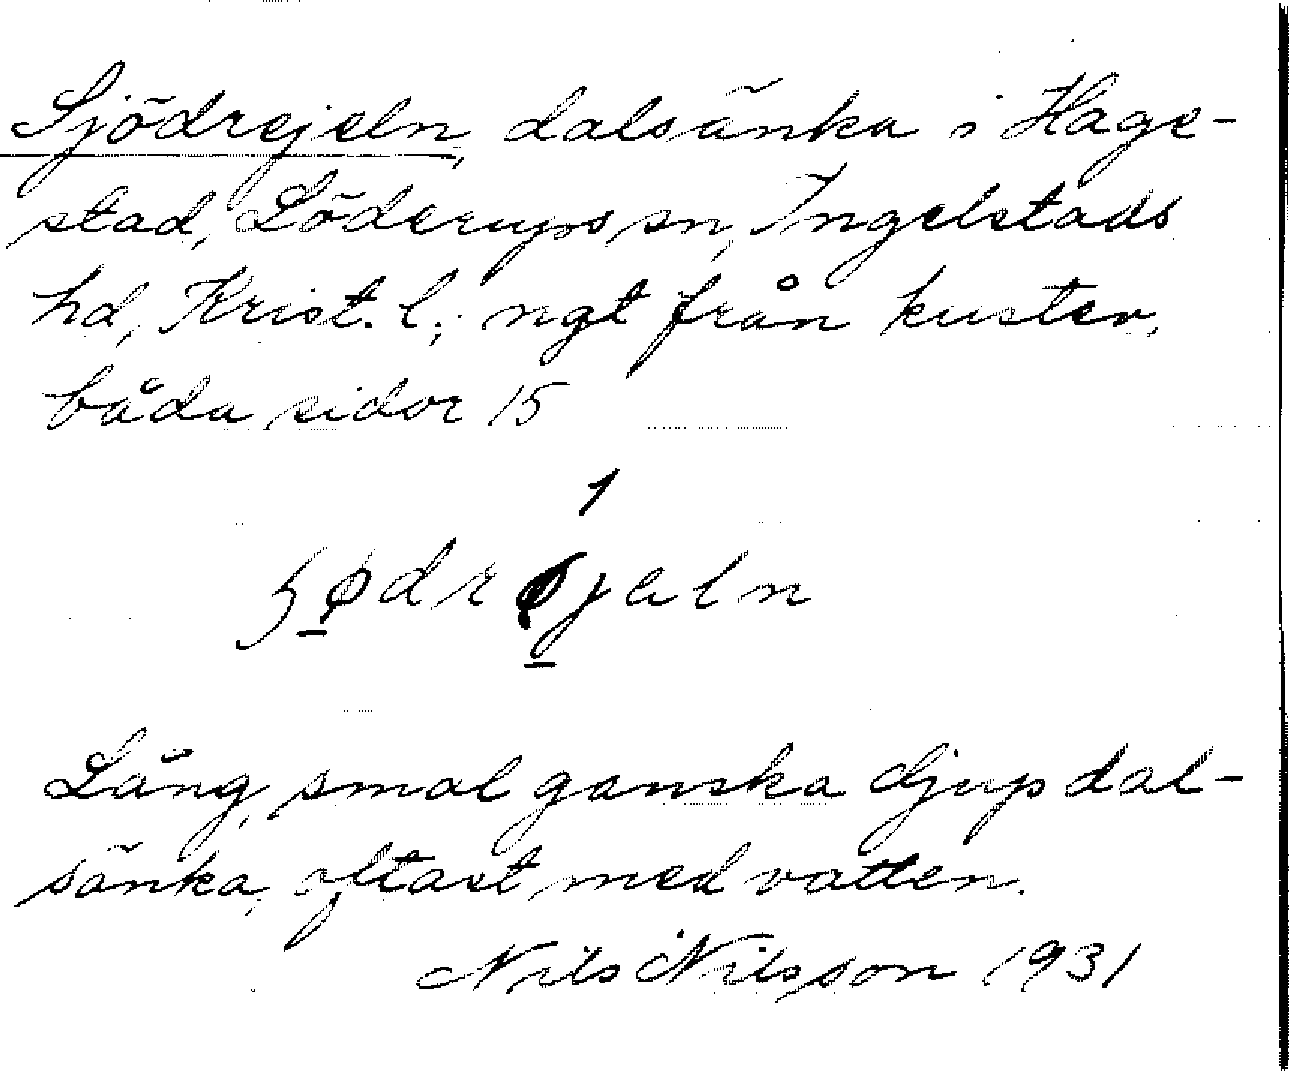 Sjödrejeln, dalsänka i Hage-
stad, Löderups sn, Ingelstads
hd, Krist. l.; ngt från kusten,
båda sidor 15
1
Lång, smal ganska djup dal-
sänka, oftast med vatten.
Nils Nilsson 1931